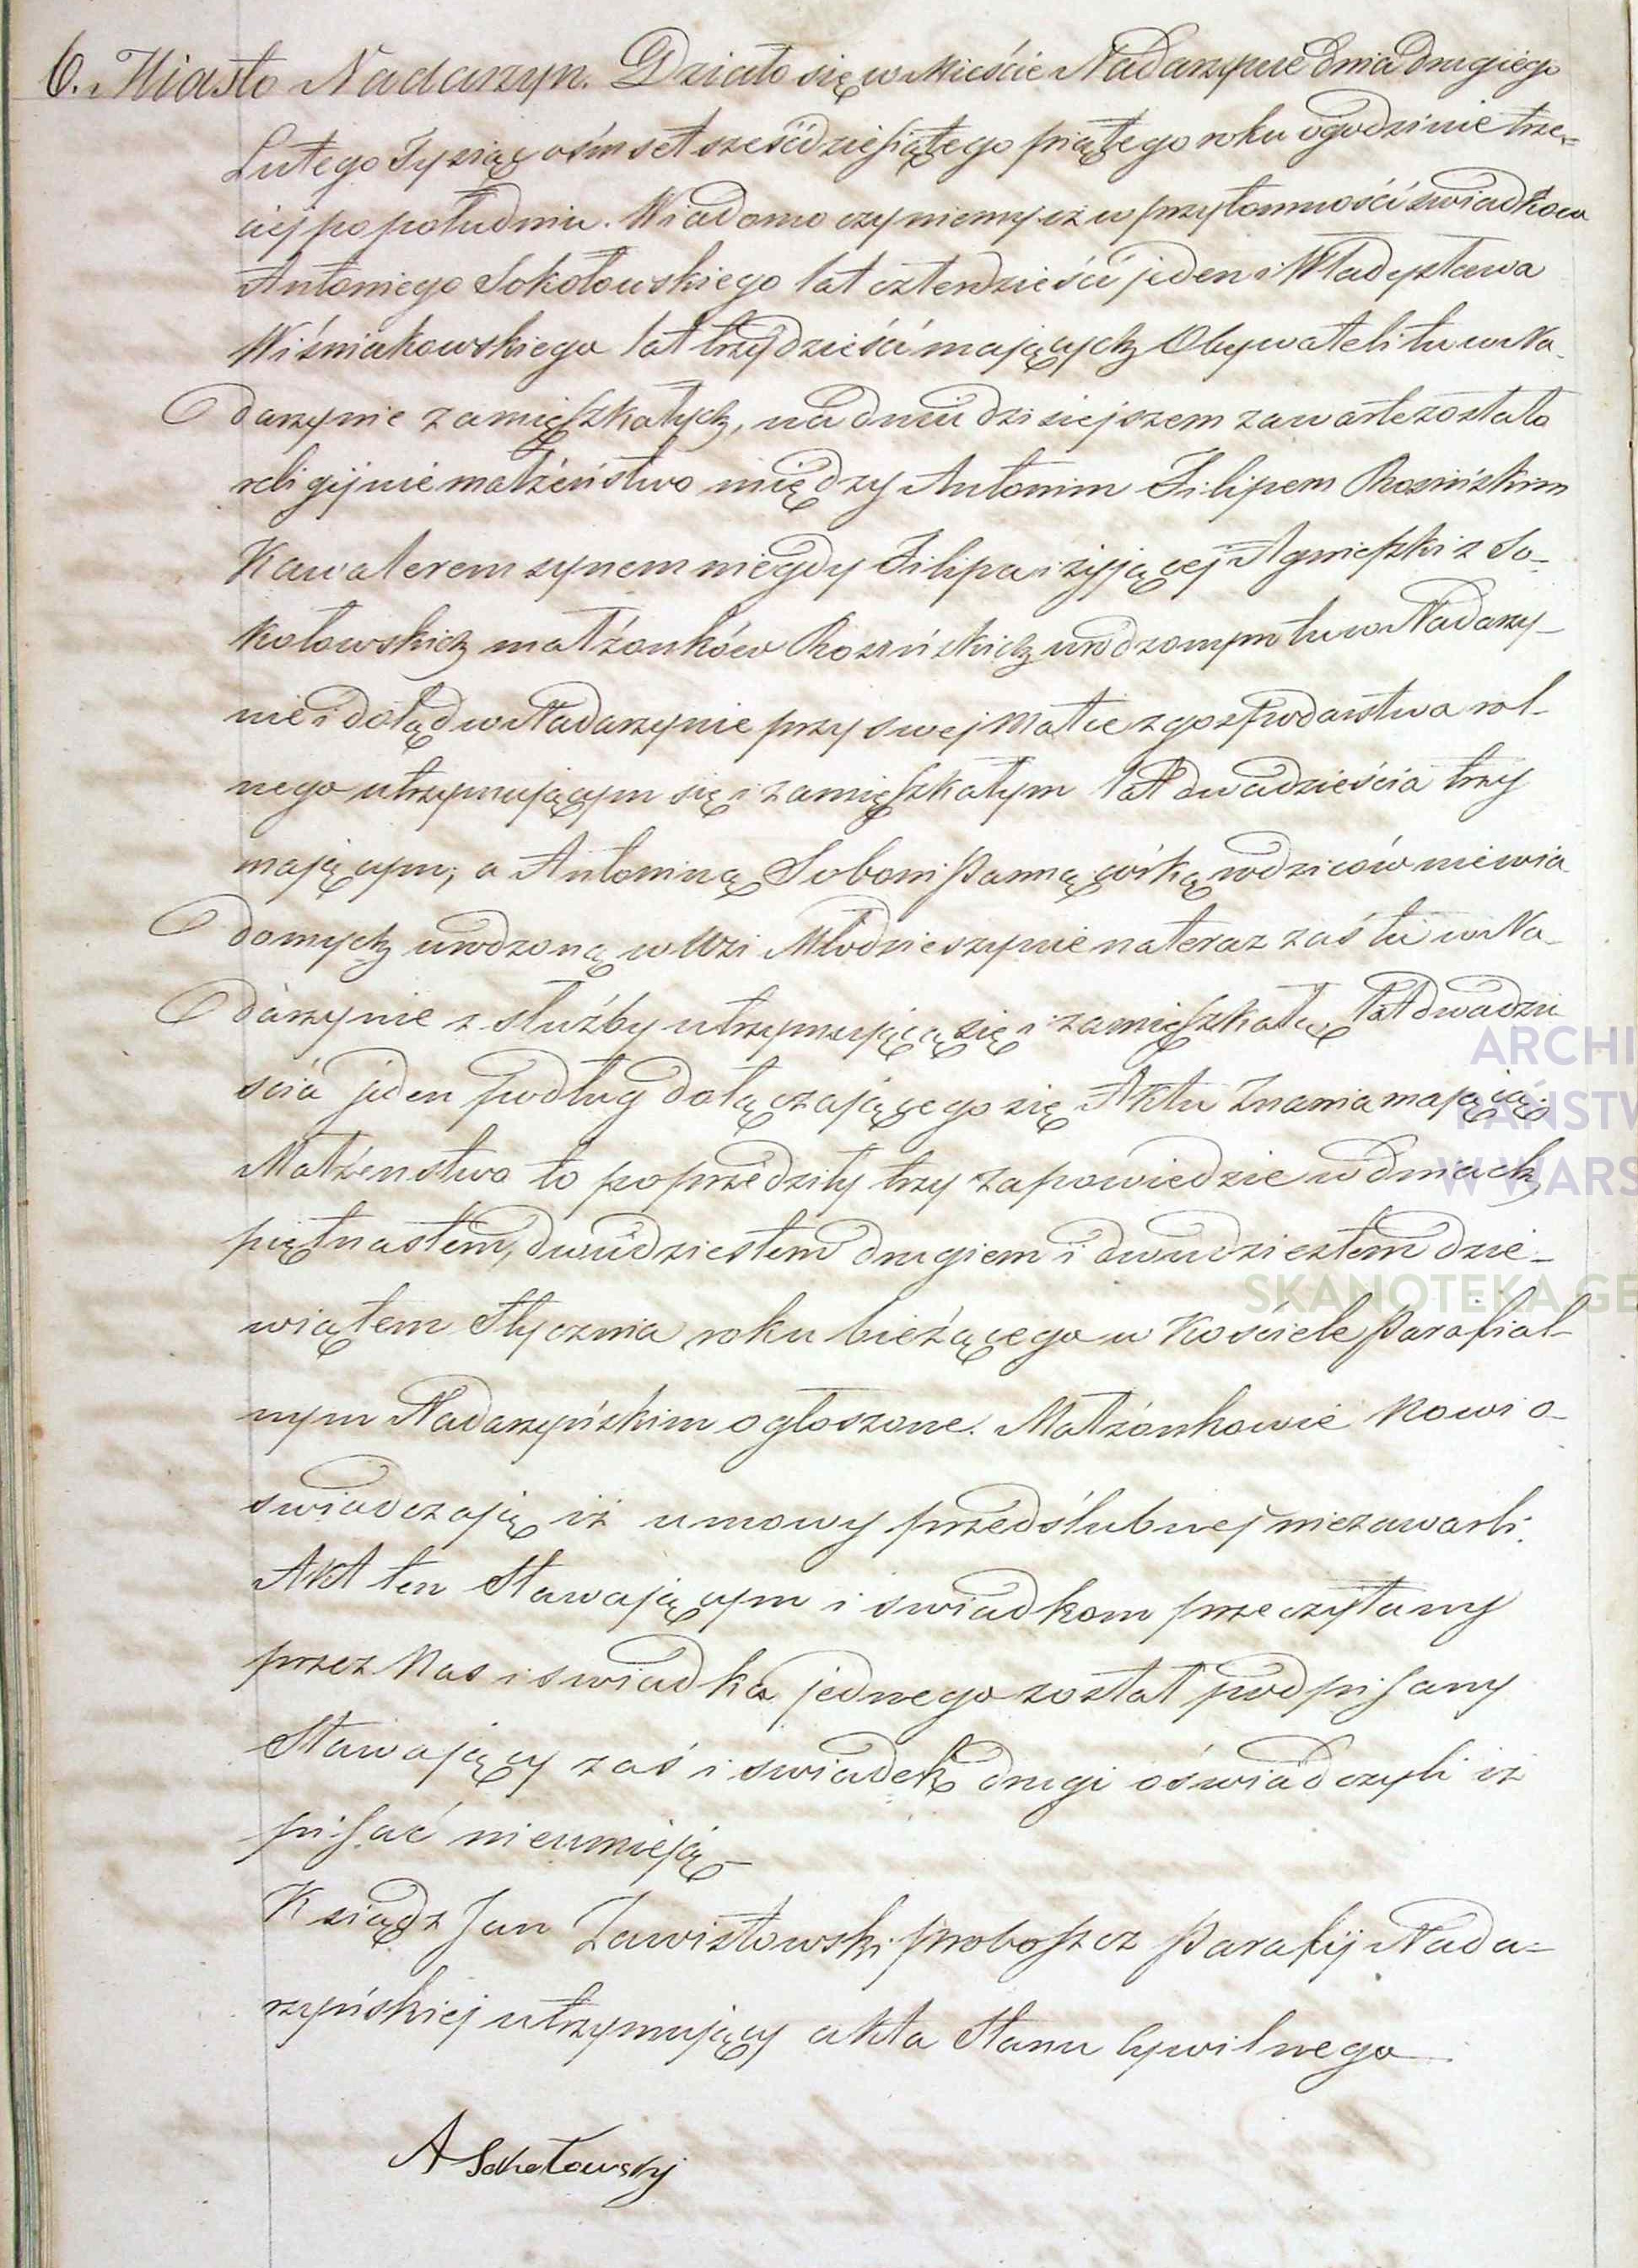 6. Miasto Nadarzyn. Działo się w Mieście Nadarzynie dnia drugiego
Lutego Tysiąc ośmset sześćdziesiątego piątego roku o godzinie trze-
ciej po południu. Wiadomo czyniemy iż w przytomności świadków
Antoniego Sokołowskiego lat czterdzieści jeden i Władysława
Wiśniakowskiego lat trzydzieści mających Obywateli tu w Na-
darzynie zamieszkałych, na dniu dzisiejszem zawarte zostało
religijnie małżeństwo między Antonim Filipem Rosińskim
Kawalerem synem niegdy Filipa i żyjącej Agnieszki z So-
kołowskich małżonków Rosińskich urodzonym tu w Nadarzy-
nie i dotąd w Nadarzynie przy swej Matce z gospodarstwa rol-
nego utrzymującym się i zamieszkałym lat dwadzieścia trzy
mającym; a Antoniną Soboni Panną córką rodziców niewia-
domych urodzoną w Wsi Młodzieszynie na teraz zaś tu w Na-
darzynie z służby utrzymującą się i zamieszkałą lat dwadzie
ścia jeden podług dołączającego się Aktu Znania mającą.
Małżeństwo to poprzedziły trzy zapowiedzie w dniach
piętnastem, dwudziestem drugiem i dwudziestem dzie-
wiątem Stycznia roku bieżącego w Kościele Parafial-
nym Nadarzyńskim ogłoszone. Małżonkowie Nowi o-
świadczają iż umowy przedślubnej niezawarli.
Akt ten Stawającym i świadkom przeczytany
przez Nas i świadka jednego został podpisany
Stawający zaś i świadek drugi oświadczyli iż
pisać nieumieją
Ksiądz Jan Zawistowski Proboszcz Parafij Nada-
rzyńskiej utrzymujący akta Stanu Cywilnego
A Sokołowskj
ARCHI
PAŃSTW
W WARS
SKANOTEKA GE